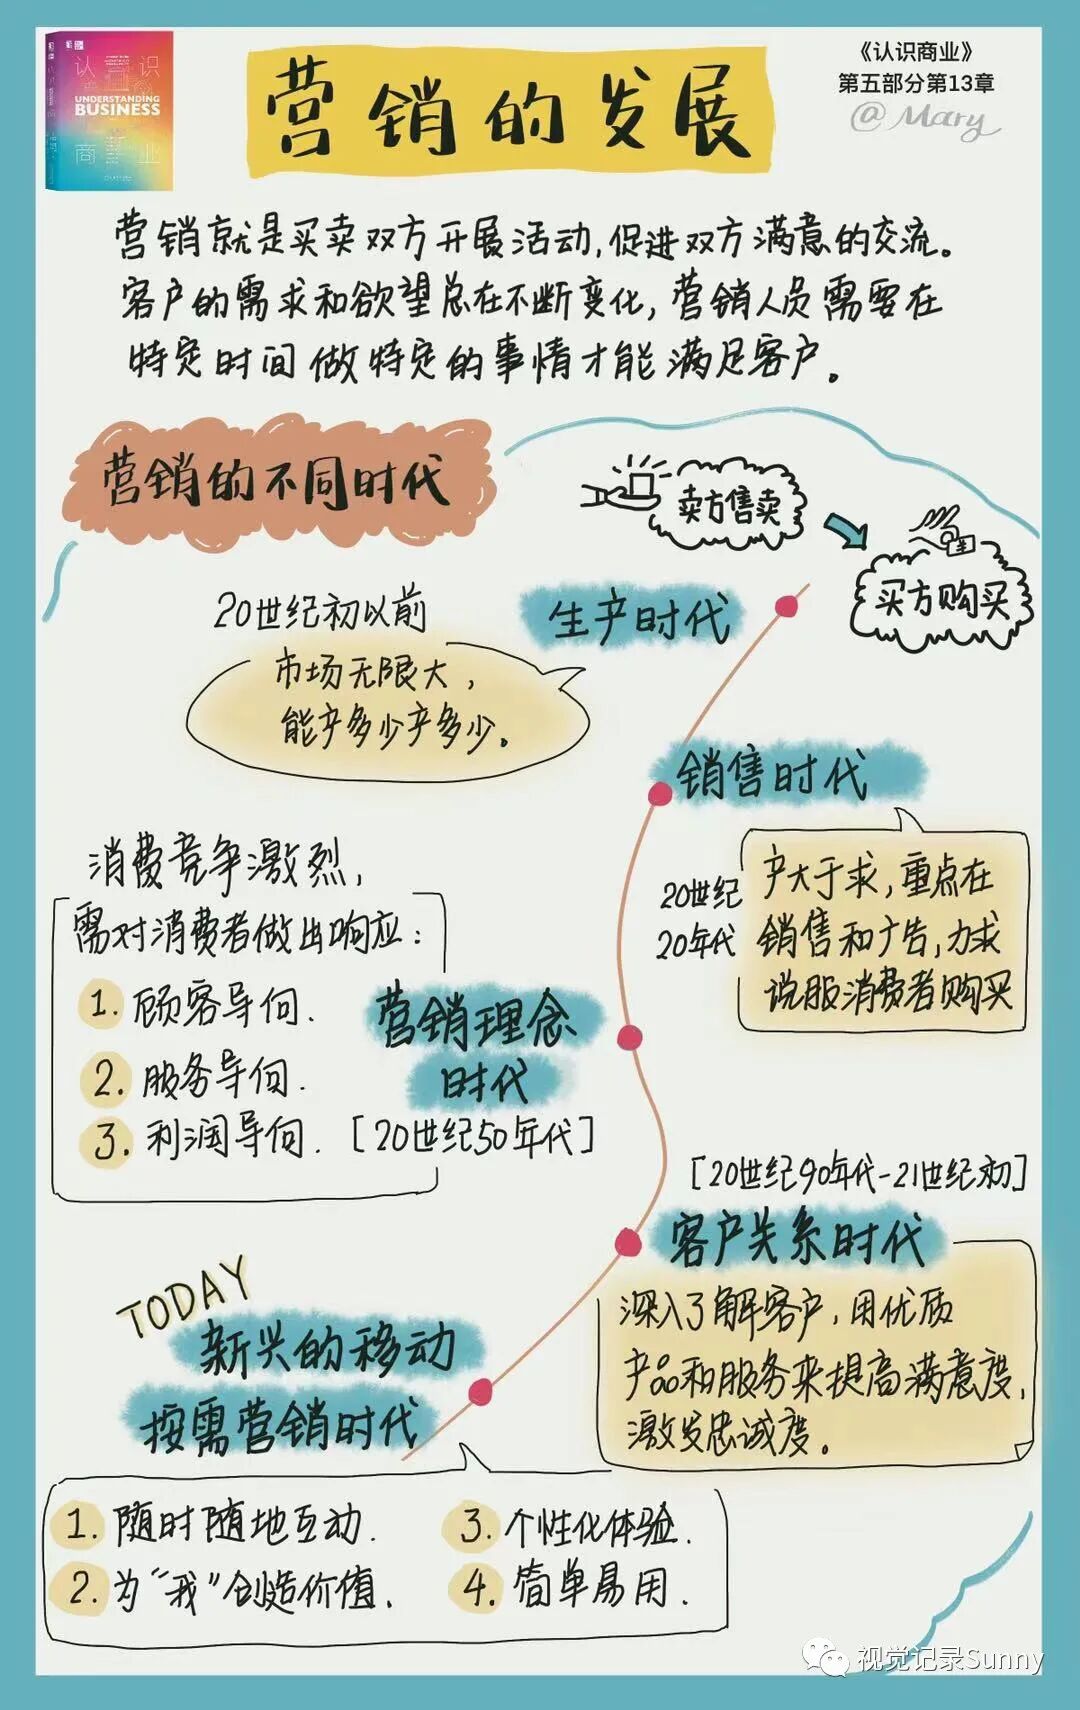 认识
UNDERSTANDING
BUSINESS
商业
营销的发展
《认识商业》
第五部分第13章
@Mary
营销就是买卖双方开展活动,促进双方满意的交流。
客户的需求和欲望总在不断变化,营销人员需要在
特定时间做特定的事情才能满足客户。
营销的不同时代
卖方售卖
买方购买
20世纪初以前
生产时代
市场无限大,
能产多少产多少。
销售时代
20世纪
20年代
产大于求,重点在
销售和广告,力求
说服消费者购买
消费竞争激烈,
需对消费者做出响应:
1. 顾客导向.
2. 服务导向.
3. 利润导向.
营销理念
时代
[20世纪50年代]
[20世纪90年代-21世纪初]
客户关系时代
深入了解客户,用优质
产品和服务来提高满意度,
激发忠诚度。
TODAY
新兴的移动
按需营销时代
1. 随时随地互动.
2. 为“我”创造价值.
3. 个性化体验.
4. 简单易用.
视觉记录Sunny